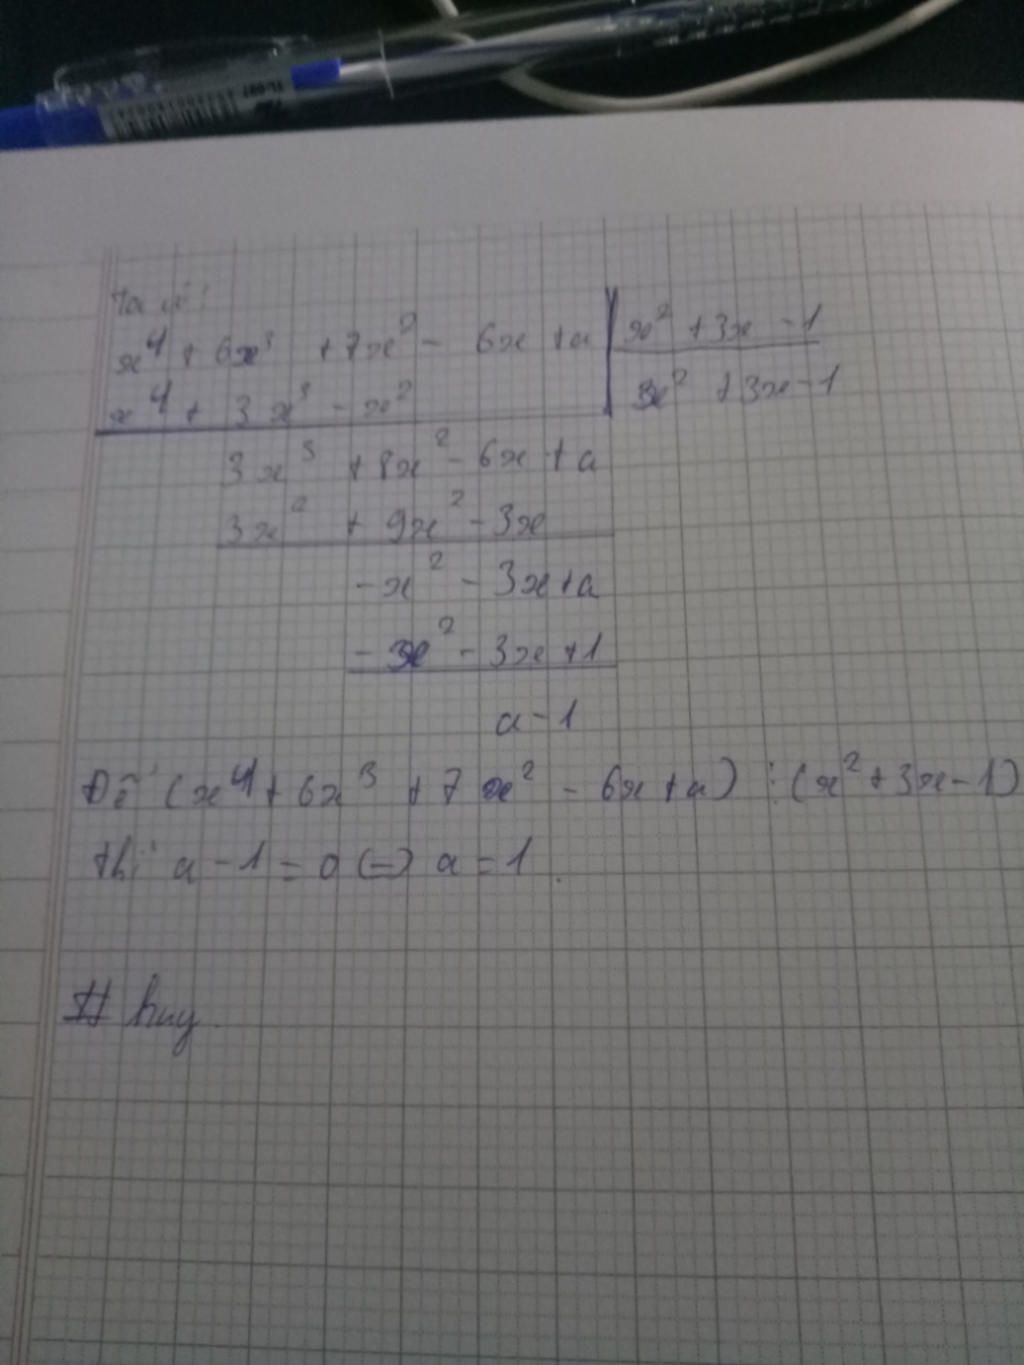 Ta có:
x⁴ + 6x³ + 7x² - 6x + a | x² + 3x - 1
x⁴ + 3x³ - x² | x² + 3x - 1
3x³ + 8x² - 6x + a
3x² + 9x² - 3x
-x² - 3x + a
-x² - 3x + 1
a - 1
Để (x⁴ + 6x³ + 7x² - 6x + a) ⋮ (x² + 3x - 1)
thì a - 1 = 0 (=) a = 1.
# huy